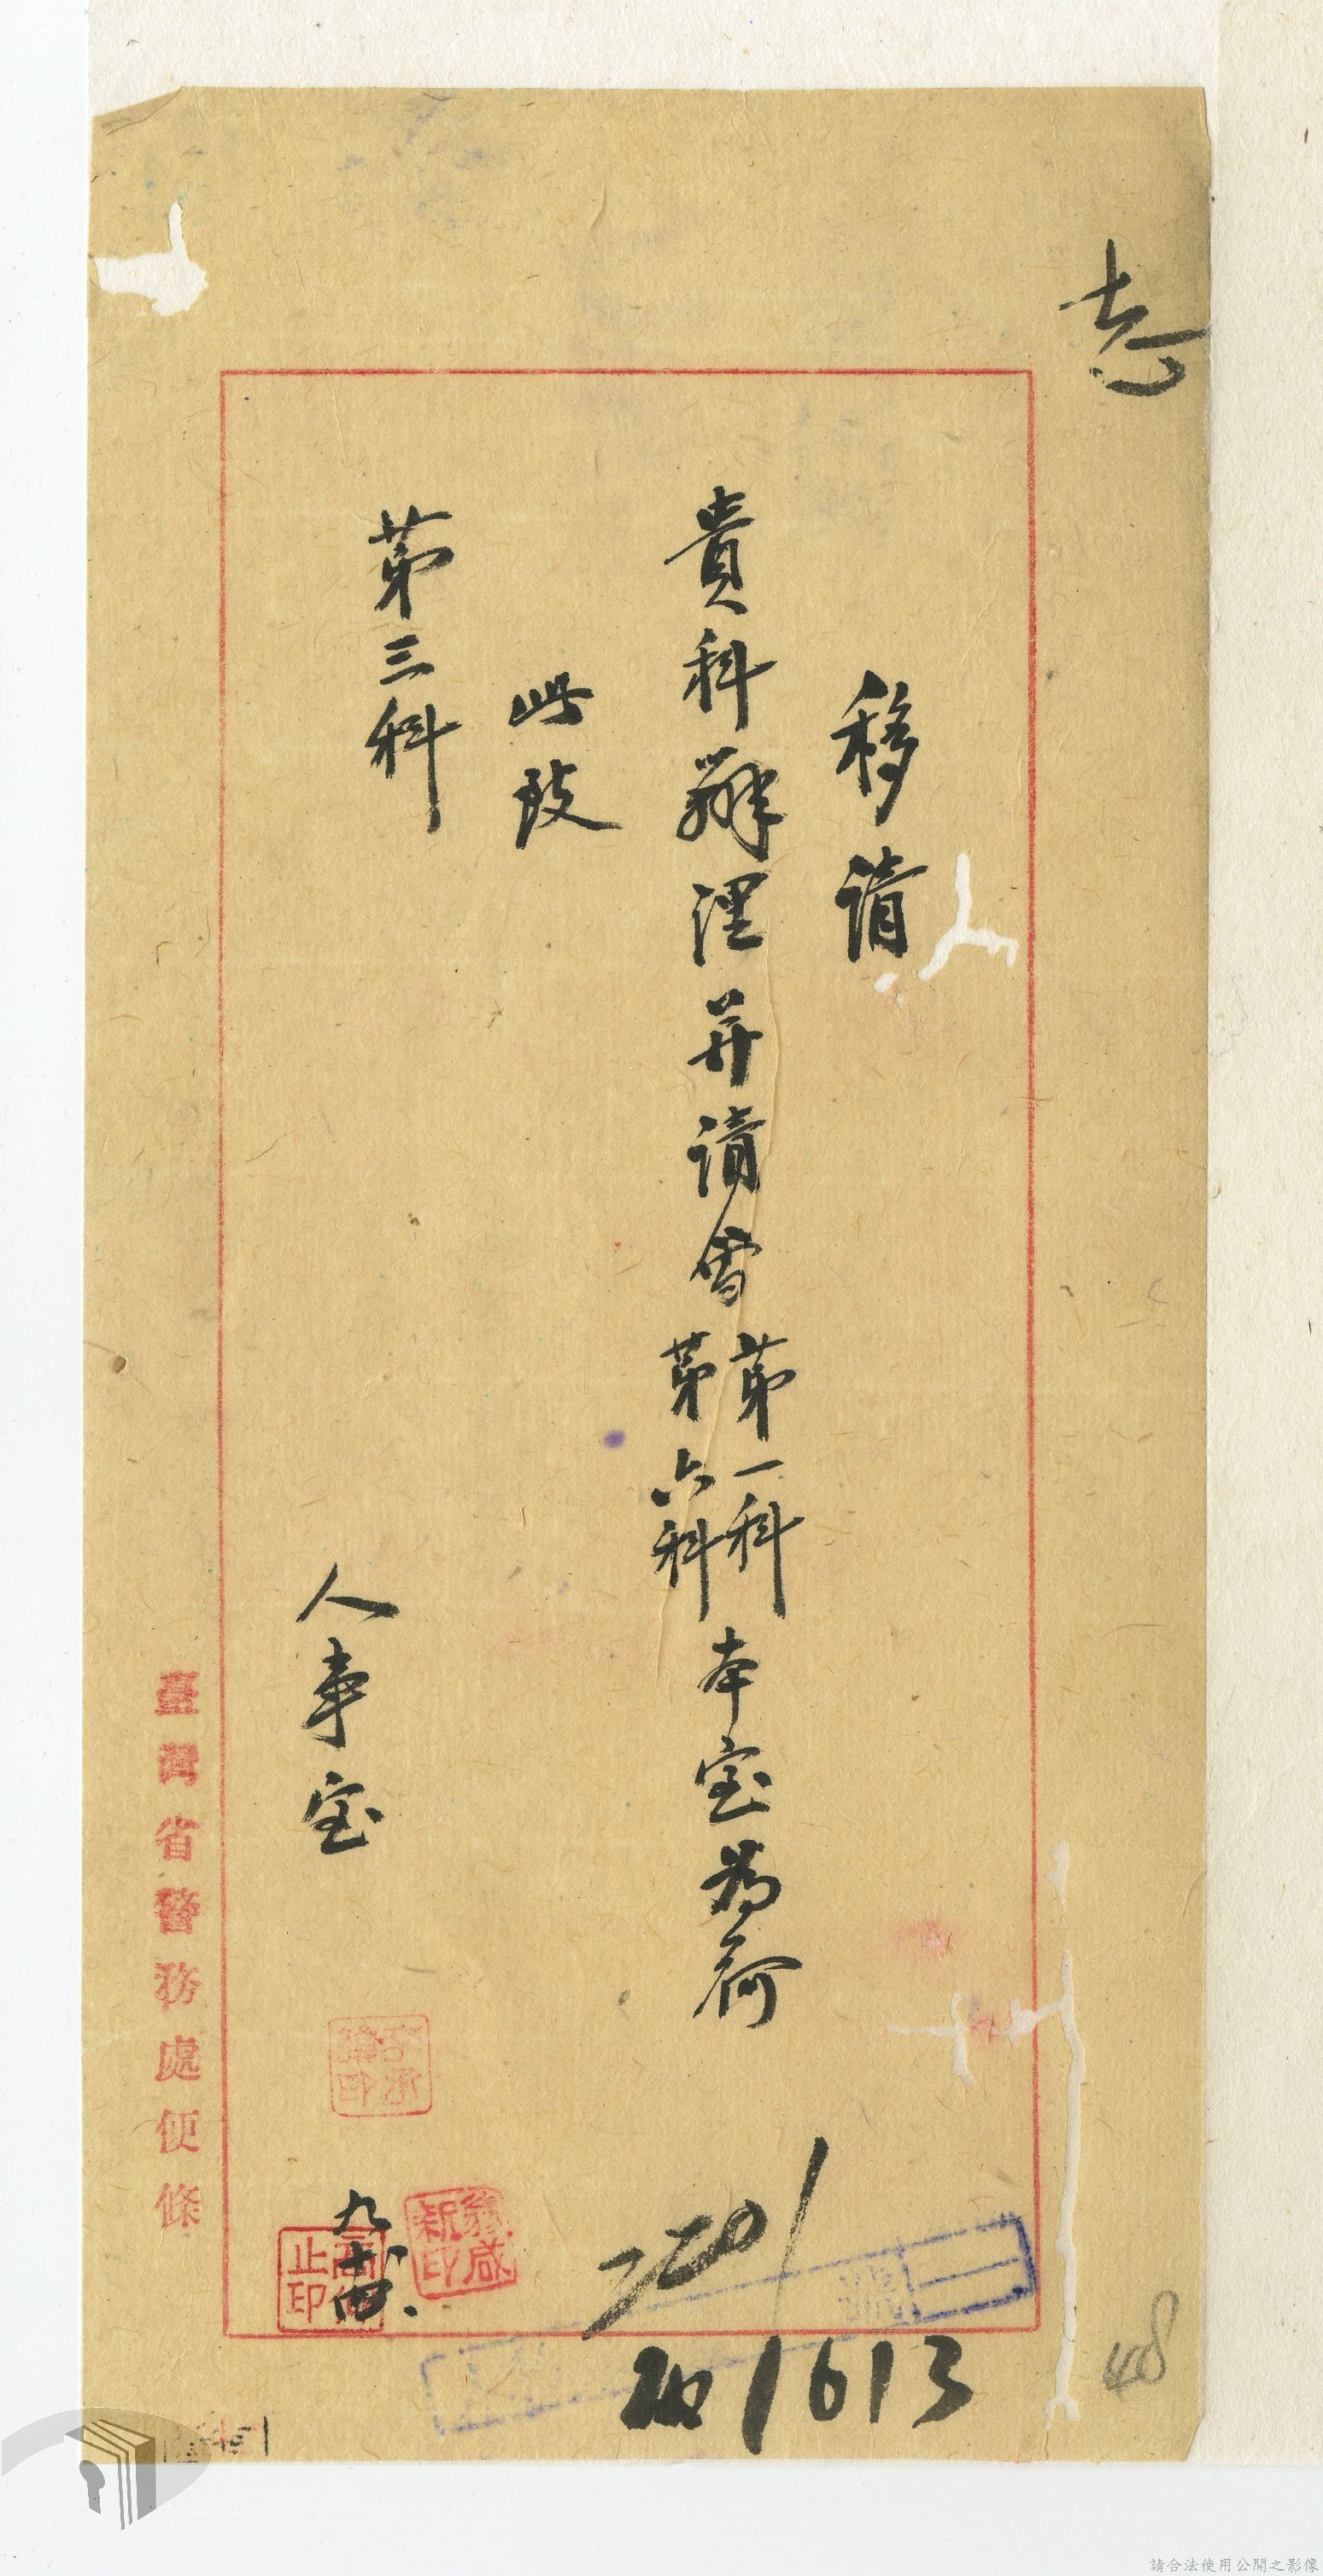 志
移請
貴科辦理并請會第一科
第六科本室為荷
此致
第三科
人事室
九、廿四.
臺灣省警務處便條
1613
48
請合法使用公開之影像